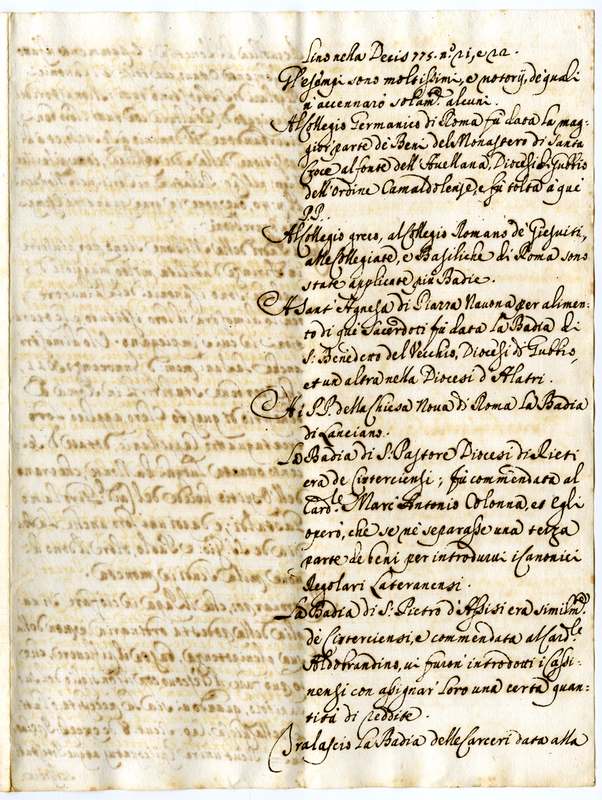 Lino nella Decis 775. n.º 21, e 22.
Gl'esempi sono moltissimi, e notorij, de quali
n'accennarò solam.te alcuni.
Al Collegio Germanico di Roma fù data la mag-
gior parte de Beni del Monastero di Santa
Croce al fonte dell'Avellana, Diocesi di Gubbio
dell'Ordine Camaldolense, e fù tolta à quei
PP.
Al Collegio greco, al Collegio Romano de Giesuiti,
alle Collegiate, e Basiliche di Roma sono
state applicate più Badie.
A Sant'Agnesa di Piazza Navona per alimen-
to di quei Sacerdoti fù data la Badia di
S. Benedetto del Vecchio, Diocesi di Gubbio,
et un altra nella Diocesi d'Alatri.
Ai P.P. della Chiesa Nova di Roma la Badia
di Lanciano.
La Badia di S. Pastore Diocesi di Rieti
era de Cisterciensi; fù commendata al
Card.le Marc'Antonio Colonna, et egli
operò, che se ne separasse una terza
parte de beni per introdurvi i Canonici
Regolari Lateranensi.
La Badia di S. Pietro d'Assisi era similm.te
de Cisterciensi, e commendata al Card.le
Aldobrandino, vi furon' introdotti i Cassi-
nensi con assignar loro una certa quan-
tità di reddite.
Tralascio la Badia delle Carceri data alla